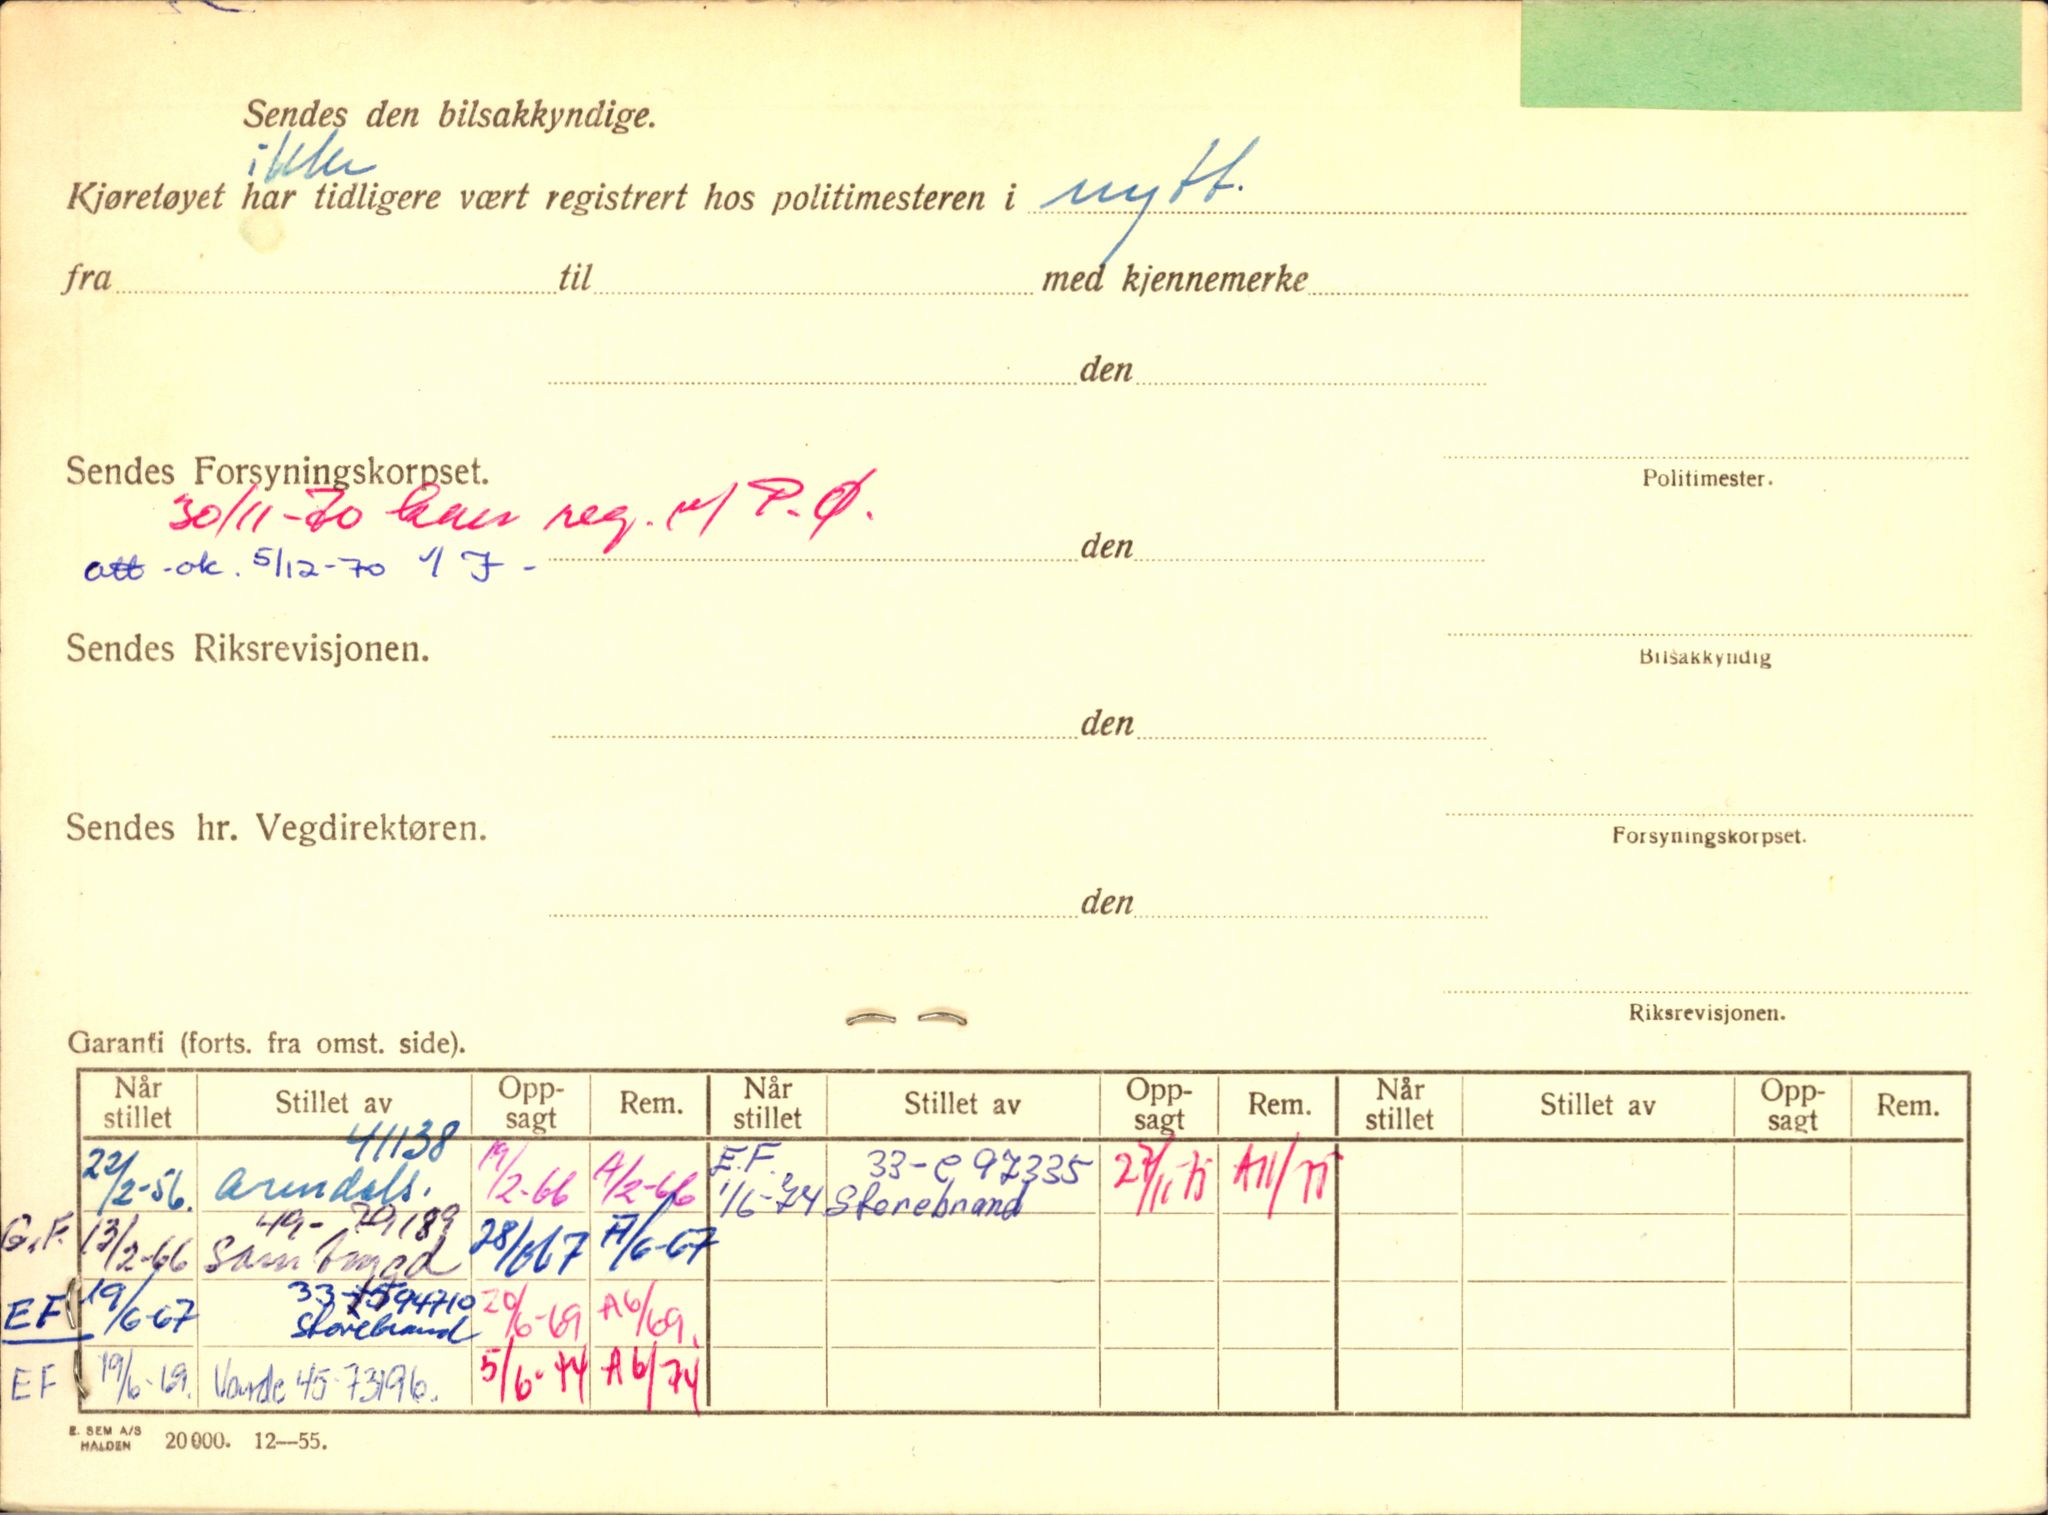 Sendes den bilsakkyndige.
ikke
Kjøretøyet har tidligere vært registrert hos politimesteren i nytt.
fra til med kjennemerke
den
Politimester.
Sendes Forsyningskorpset.
30/11-70 reg. v/ P.Ø.
att -ok. 5/12-70 J -
den
Bilsakkyndig
Sendes Riksrevisjonen.
den
Forsyningskorpset.
Sendes hr. Vegdirektøren.
den
Riksrevisjonen.
Garanti (forts. fra omst. side).
Når stillet Stillet av Opp-sagt Rem. Når stillet Stillet av Opp-sagt Rem. Når stillet Stillet av Opp-sagt Rem.
41138
22/2-56. Arendals. 19/2-66 A/2-66 E.F. 1/6-74 33-e 97335 Storebrand 27/11-75 A11/75
G.F. 13/2-66 49-79189 Sambygd 28/6 67 A/6-67
EF 19/6-67 94710 Storebrand 20/6-69 A6/69.
EF 19/6-69. Varde 45-73196. 5/6-74 A6/74
E. SEM A/S
HALDEN 20000. 12—55.